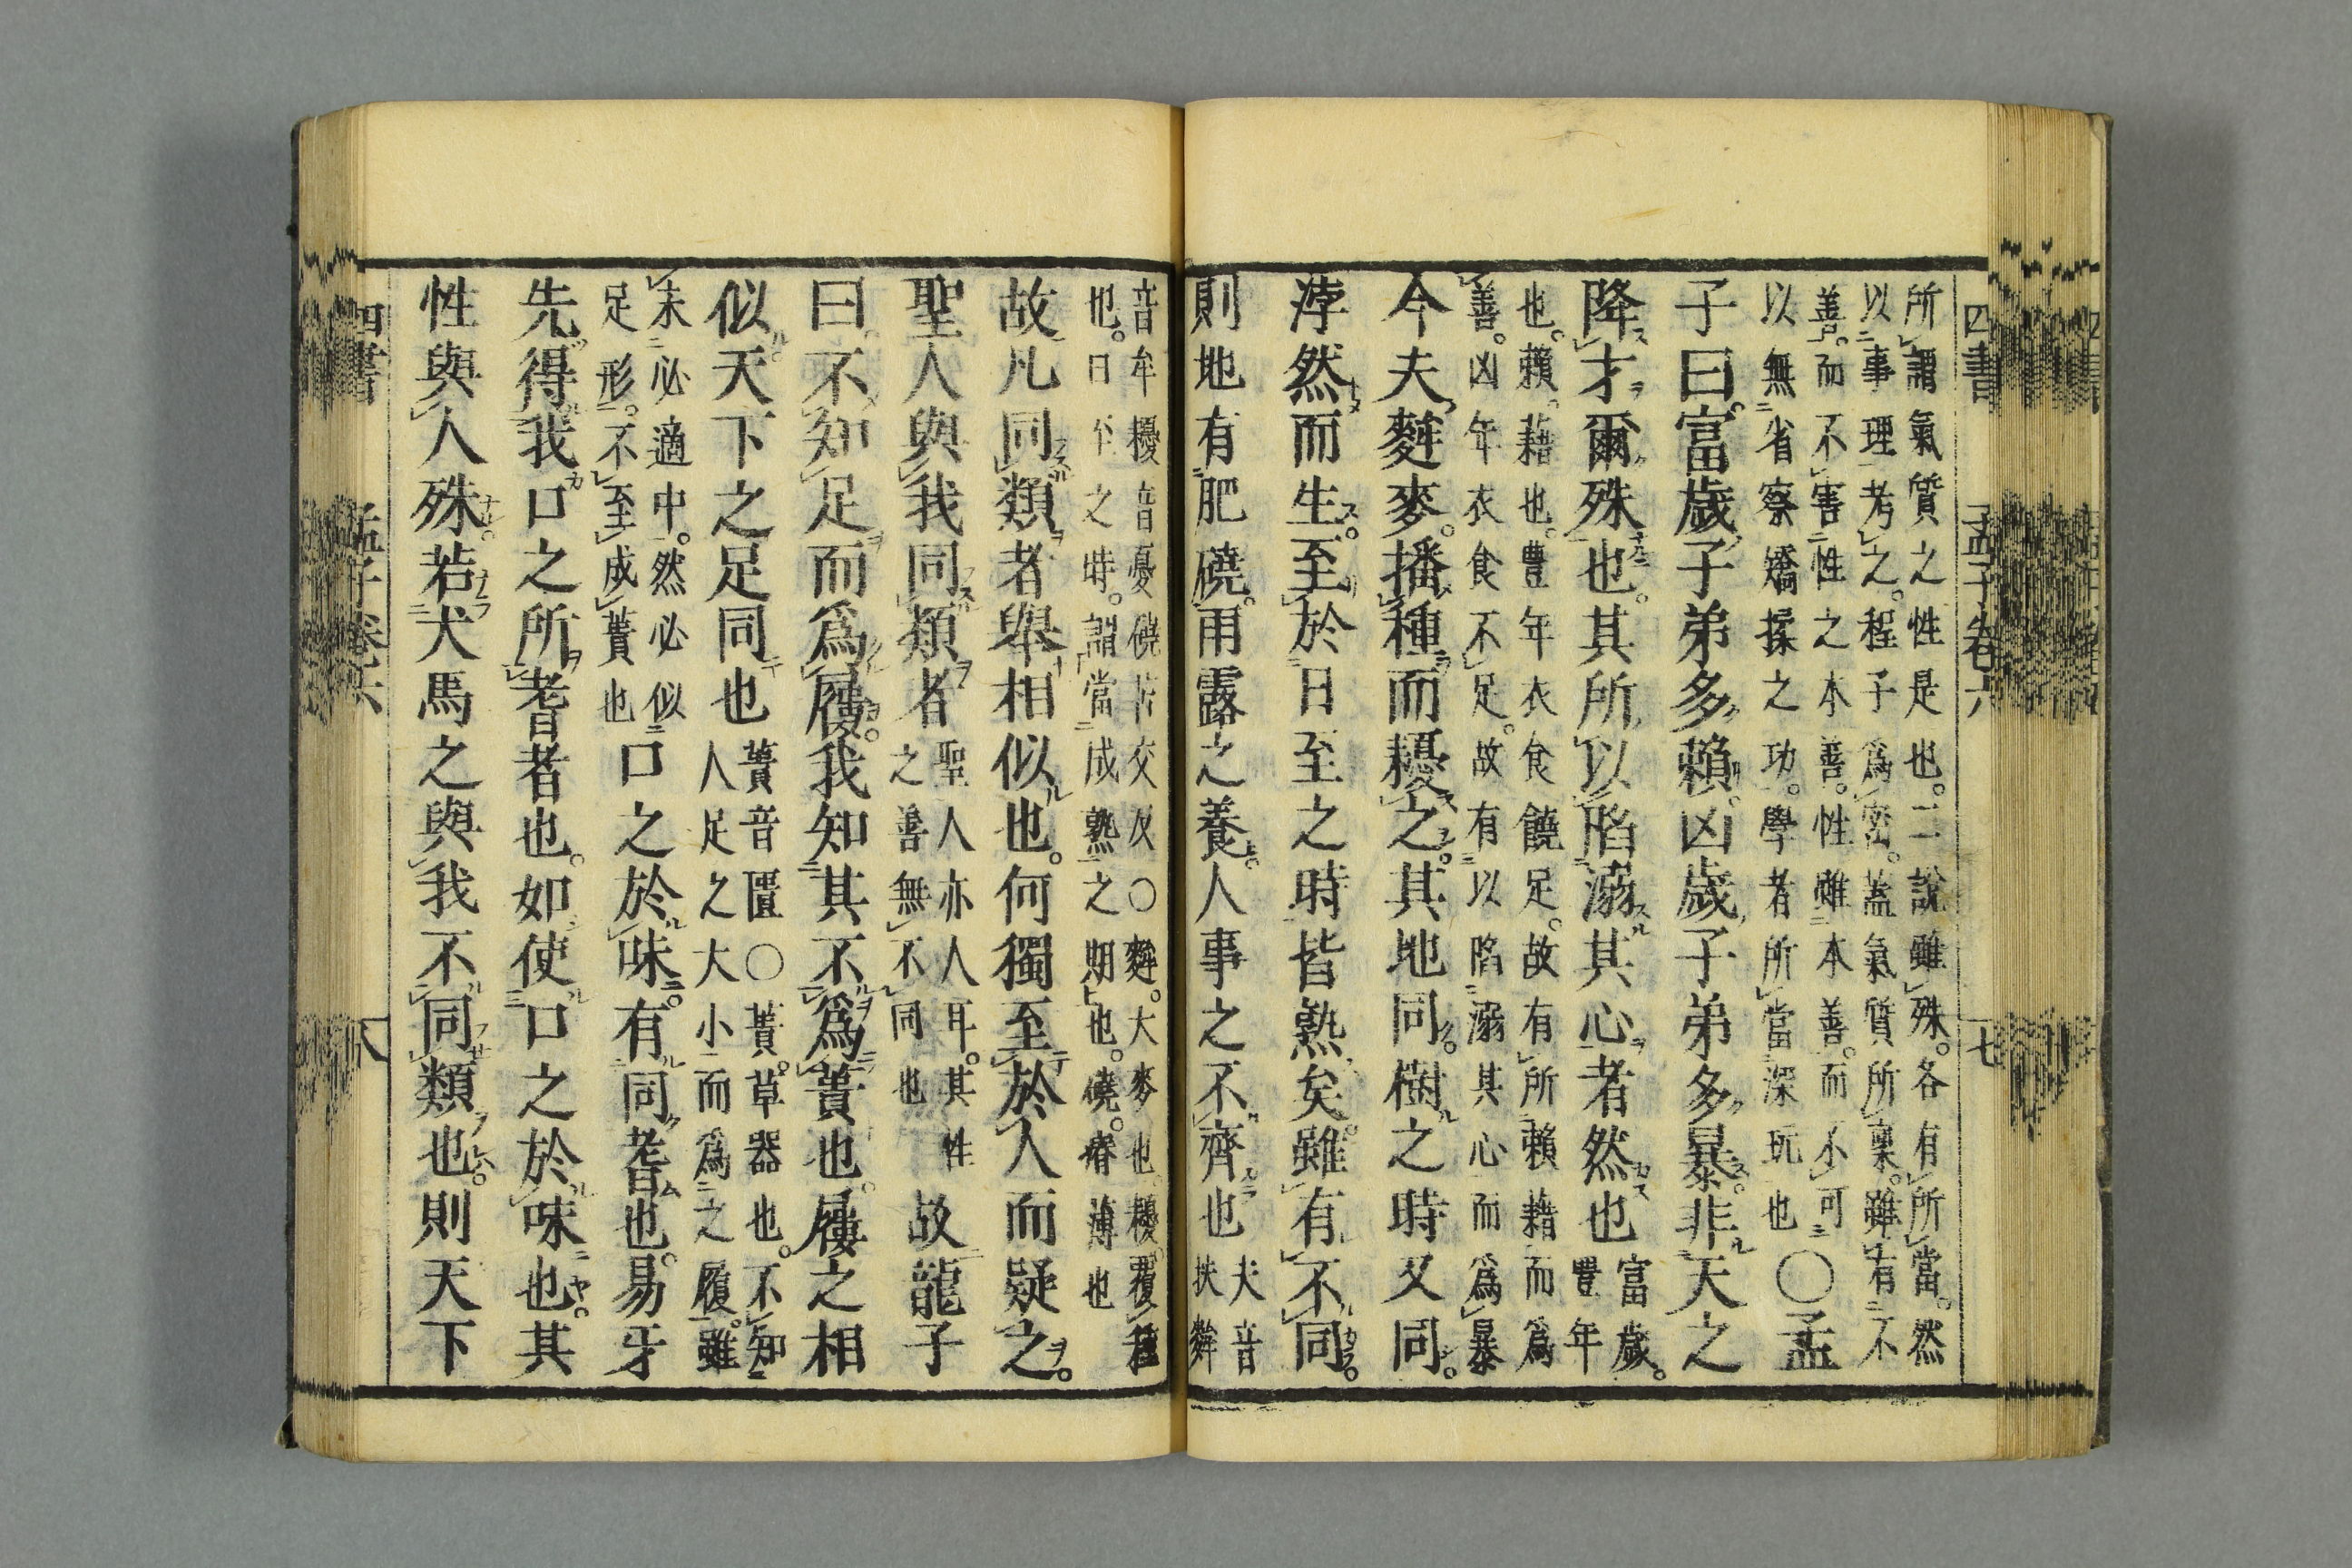 四書 孟子卷六 十七
所謂氣質之性是也。二說雖殊。各有所當。然
以事理考之。程子爲密。蓋氣質所稟。雖有不
善。而不害性之本善。性雖本善。而不可
以無省察矯揉之功。學者所當深玩也
○孟
子曰。富歲子弟多賴。凶歲子弟多暴。非天之
降才爾殊也。其所以陷溺其心者然也
富歲。
豐年
也。賴。藉也。豊年衣食饒足。故有所賴藉而爲
善。凶年衣食不足。故有以陷溺其心而爲暴
今夫麰麥。播種而耰之。其地同。樹之時又同。
浡然而生。至於日至之時皆熟矣。雖有不同。
則地有肥磽。雨露之養。人事之不齊也
夫音
扶麰
音牟耰音憂磽苦交反○麰。大麥也。耰。覆種
也。日至之時。謂當成熟之期也。磽。瘠薄也
故凡同類者舉相似也。何獨至於人而疑之。
聖人與我同類者
聖人亦人耳。其性
之善無不同也
故龍子
曰。不知足而爲屨。我知其不爲蕢也。屨之相
似。天下之足同也
蕢音匱○蕢。草器也。不知
人足之大小而爲之屨。雖
未必適中。然必似
足形。不至成蕢也
口之於味。有同耆也。易牙
先得我口之所耆者也。如使口之於味也。其
性與人殊。若犬馬之與我不同類也。則天下
四書 孟子卷六 十八